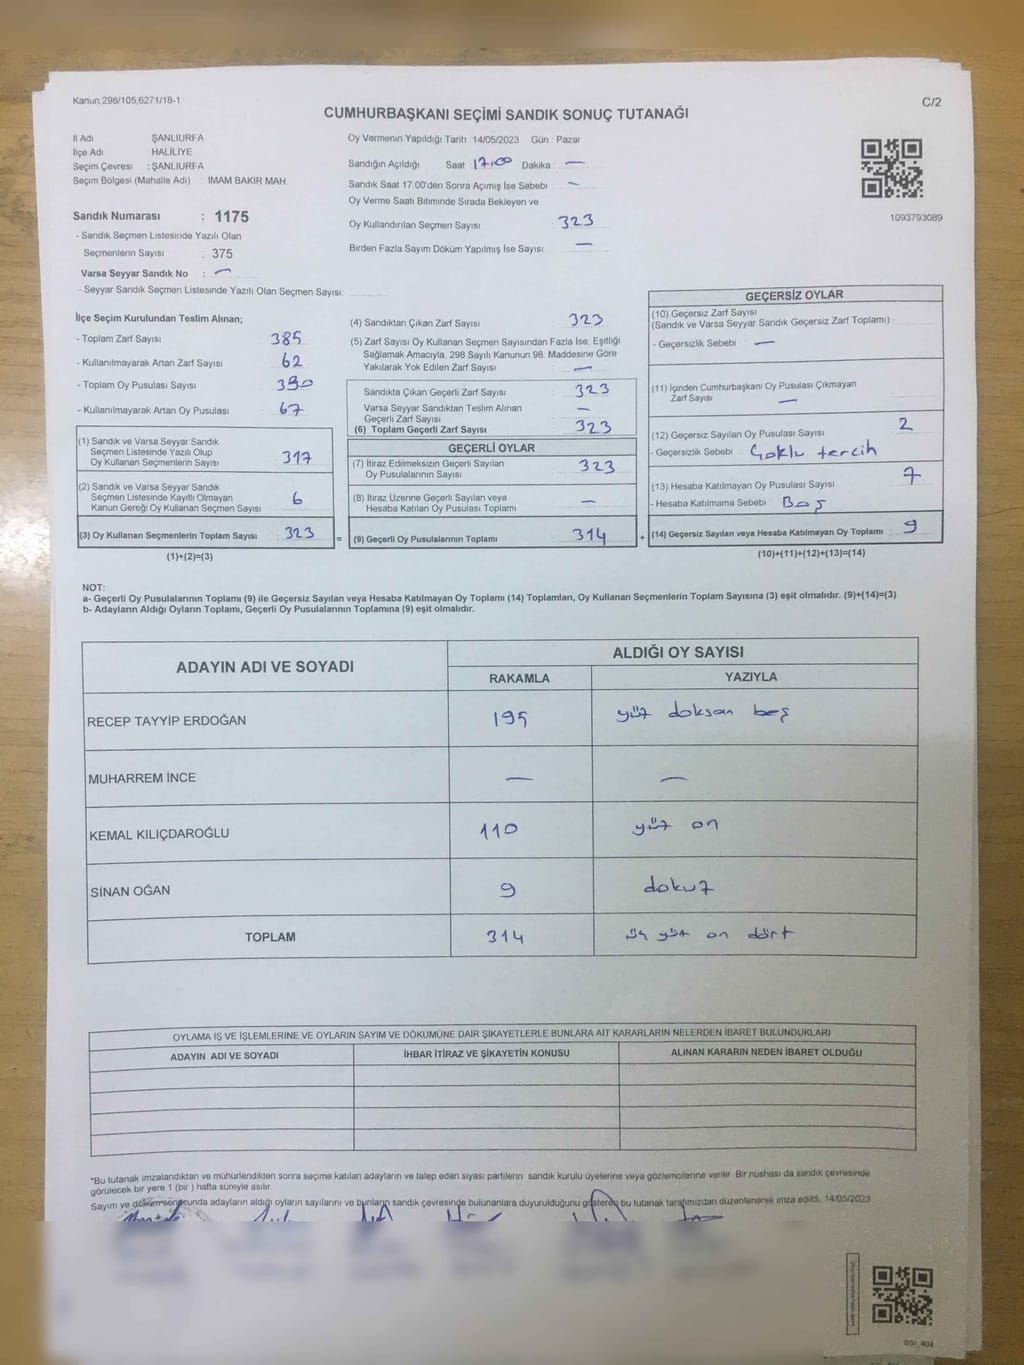 Kanun;298/105,6271/18-1
C/2
CUMHURBAŞKANI SEÇİMİ SANDIK SONUÇ TUTANAĞI
İl Adı ŞANLIURFA
İlçe Adı HALİLİYE
Seçim Çevresi : ŞANLIURFA
Seçim Bölgesi (Mahalle Adı) İMAM BAKIR MAH
Sandık Numarası : 1175
- Sandık Seçmen Listesinde Yazılı Olan
Seçmenlerin Sayısı : 375
Varsa Seyyar Sandık No : —
- Seyyar Sandık Seçmen Listesinde Yazılı Olan Seçmen Sayısı:
Oy Vermenin Yapıldığı Tarih : 14/05/2023 Gün : Pazar
Sandığın Açıldığı Saat 17.00 Dakika : —
Sandık Saat 17.00'den Sonra Açımış İse Sebebi —
Oy Verme Saati Bitiminde Sırada Bekleyen ve
Oy Kullandırılan Seçmen Sayısı 323
Birden Fazla Sayım Döküm Yapılmış İse Sayısı —
1093793089
İlçe Seçim Kurulundan Teslim Alınan;
- Toplam Zarf Sayısı 385
- Kullanılmayarak Artan Zarf Sayısı 62
- Toplam Oy Pusulası Sayısı 390
- Kullanılmayarak Artan Oy Pusulası 67
(1) Sandık ve Varsa Seyyar Sandık
Seçmen Listesinde Yazılı Olup
Oy Kullanan Seçmenlerin Sayısı 317
(2) Sandık ve Varsa Seyyar Sandık
Seçmen Listesinde Kayıtlı Olmayan
Kanun Gereği Oy Kullanan Seçmen Sayısı 6
(3) Oy Kullanan Seçmenlerin Toplam Sayısı 323
(1)+(2)=(3)
=
(4) Sandıktan Çıkan Zarf Sayısı 323
(5) Zarf Sayısı Oy Kullanan Seçmen Sayısından Fazla İse, Eşitliği
Sağlamak Amacıyla, 298 Sayılı Kanunun 98. Maddesine Göre
Yakılarak Yok Edilen Zarf Sayısı —
Sandıkta Çıkan Geçerli Zarf Sayısı 323
Varsa Seyyar Sandıktan Teslim Alınan
Geçerli Zarf Sayısı —
(6) Toplam Geçerli Zarf Sayısı 323
GEÇERLİ OYLAR
(7) İtiraz Edilmeksizin Geçerli Sayılan
Oy Pusulalarının Sayısı 323
(8) İtiraz Üzerine Geçerli Sayılan veya
Hesaba Katılan Oy Pusulası Toplamı —
(9) Geçerli Oy Pusulalarının Toplamı 314
+
GEÇERSİZ OYLAR
(10) Geçersiz Zarf Sayısı
(Sandık ve Varsa Seyyar Sandık Geçersiz Zarf Toplamı)
- Geçersizlik Sebebi —
(11) İçinden Cumhurbaşkanı Oy Pusulası Çıkmayan
Zarf Sayısı —
(12) Geçersiz Sayılan Oy Pusulası Sayısı 2
- Geçersizlik Sebebi Çoklu tercih
(13) Hesaba Katılmayan Oy Pusulası Sayısı 7
- Hesaba Katılmama Sebebi Boş
(14) Geçersiz Sayılan veya Hesaba Katılmayan Oy Toplamı 9
(10)+(11)+(12)+(13)=(14)
NOT:
a- Geçerli Oy Pusulalarının Toplamı (9) ile Geçersiz Sayılan veya Hesaba Katılmayan Oy Toplamı (14) Toplamları, Oy Kullanan Seçmenlerin Toplam Sayısına (3) eşit olmalıdır. (9)+(14)=(3)
b- Adayların Aldığı Oyların Toplamı, Geçerli Oy Pusulalarının Toplamına (9) eşit olmalıdır.
ADAYIN ADI VE SOYADI
ALDIĞI OY SAYISI
RAKAMLA YAZIYLA
RECEP TAYYİP ERDOĞAN 195 yüz doksan beş
MUHARREM İNCE — —
KEMAL KILIÇDAROĞLU 110 yüz on
SİNAN OĞAN 9 dokuz
TOPLAM 314 üç yüz on dört
OYLAMA İŞ VE İŞLEMLERİNE VE OYLARIN SAYIM VE DÖKÜMÜNE DAİR ŞİKAYETLERLE BUNLARA AİT KARARLARIN NELERDEN İBARET BULUNDUKLARI
ADAYIN ADI VE SOYADI İHBAR İTİRAZ VE ŞİKAYETİN KONUSU ALINAN KARARIN NEDEN İBARET OLDUĞU
*Bu tutanak imzalandıktan ve mühürlendikten sonra seçime katılan adayların ve talep eden siyasi partilerin sandık kurulu üyelerine veya gözlemcilerine verilir. Bir nushası da sandık çevresinde
görülecek bir yere 1 (bir ) hafta süreyle asılır.
Sayım ve döküm sonucunda adayların aldığı oyların sayılarını ve bunların sandık çevresinde bulunanlara duyurulduğunu gösteren bu tutanak tarafımızdan düzenlenerek imza edildi. 14/05/2023